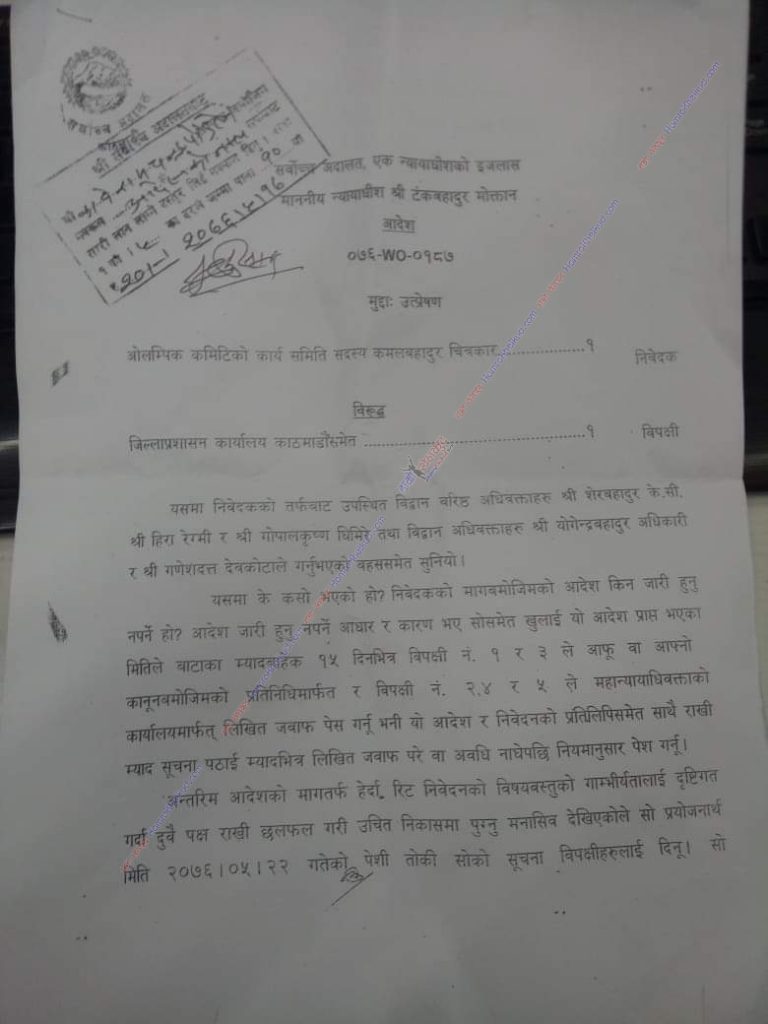 सर्वोच्च अदालत
श्री सर्वोच्च अदालतबाट
१०
२०७६।५।१६
सर्वोच्च अदालत, एक न्यायाधीशको इजलास
माननीय न्यायाधीश श्री टंकबहादुर मोक्तान
आदेश
०७६-WO-०१८७
मुद्दाः उत्प्रेषण
ओलम्पिक कमिटिको कार्य समिति सदस्य कमलबहादुर चित्रकार.....................१ निवेदक
विरूद्ध
जिल्लाप्रशासन कार्यालय काठमाडौंसमेत .....................................१ विपक्षी
यसमा निवेदकको तर्फबाट उपस्थित विद्वान वरिष्ठ अधिवक्ताहरु श्री शेरबहादुर के.सी.
श्री हिरा रेग्मी र श्री गोपालकृष्ण घिमिरे तथा विद्वान अधिवक्ताहरु श्री योगेन्द्रबहादुर अधिकारी
र श्री गणेशदत्त देवकोटाले गर्नुभएको वहससमेत सुनियो।
यसमा के कसो भएको हो? निवेदकको मागबमोजिमको आदेश किन जारी हुनु
नपर्ने हो? आदेश जारी हुनु नपर्ने आधार र कारण भए सोसमेत खुलाई यो आदेश प्राप्त भएका
मितिले बाटाका म्यादबाहेक १५ दिनभित्र विपक्षी नं. १ र ३ ले आफू वा आफ्नो
कानूनबमोजिमको प्रतिनिधिमार्फत र विपक्षी नं. २,४ र ५ ले महान्यायाधिवक्ताको
कार्यालयमार्फत् लिखित जवाफ पेस गर्नू भनी यो आदेश र निवेदनको प्रतिलिपिसमेत साथै राखी
म्याद सूचना पठाई म्यादभित्र लिखित जवाफ परे वा अवधि नाघेपछि नियमानुसार पेश गर्नू।
अन्तरिम आदेशको मागतर्फ हेर्दा, रिट निवेदनको विषयवस्तुको गाम्भीर्यतालाई दृष्टिगत
गर्दा दुवै पक्ष राखी छलफल गरी उचित निकासमा पुग्नु मनासिव देखिएकोले सो प्रयोजनार्थ
मिति २०७६।०५।२२ गतेको पेशी तोकी सोको सूचना विपक्षीहरुलाई दिनू। सो